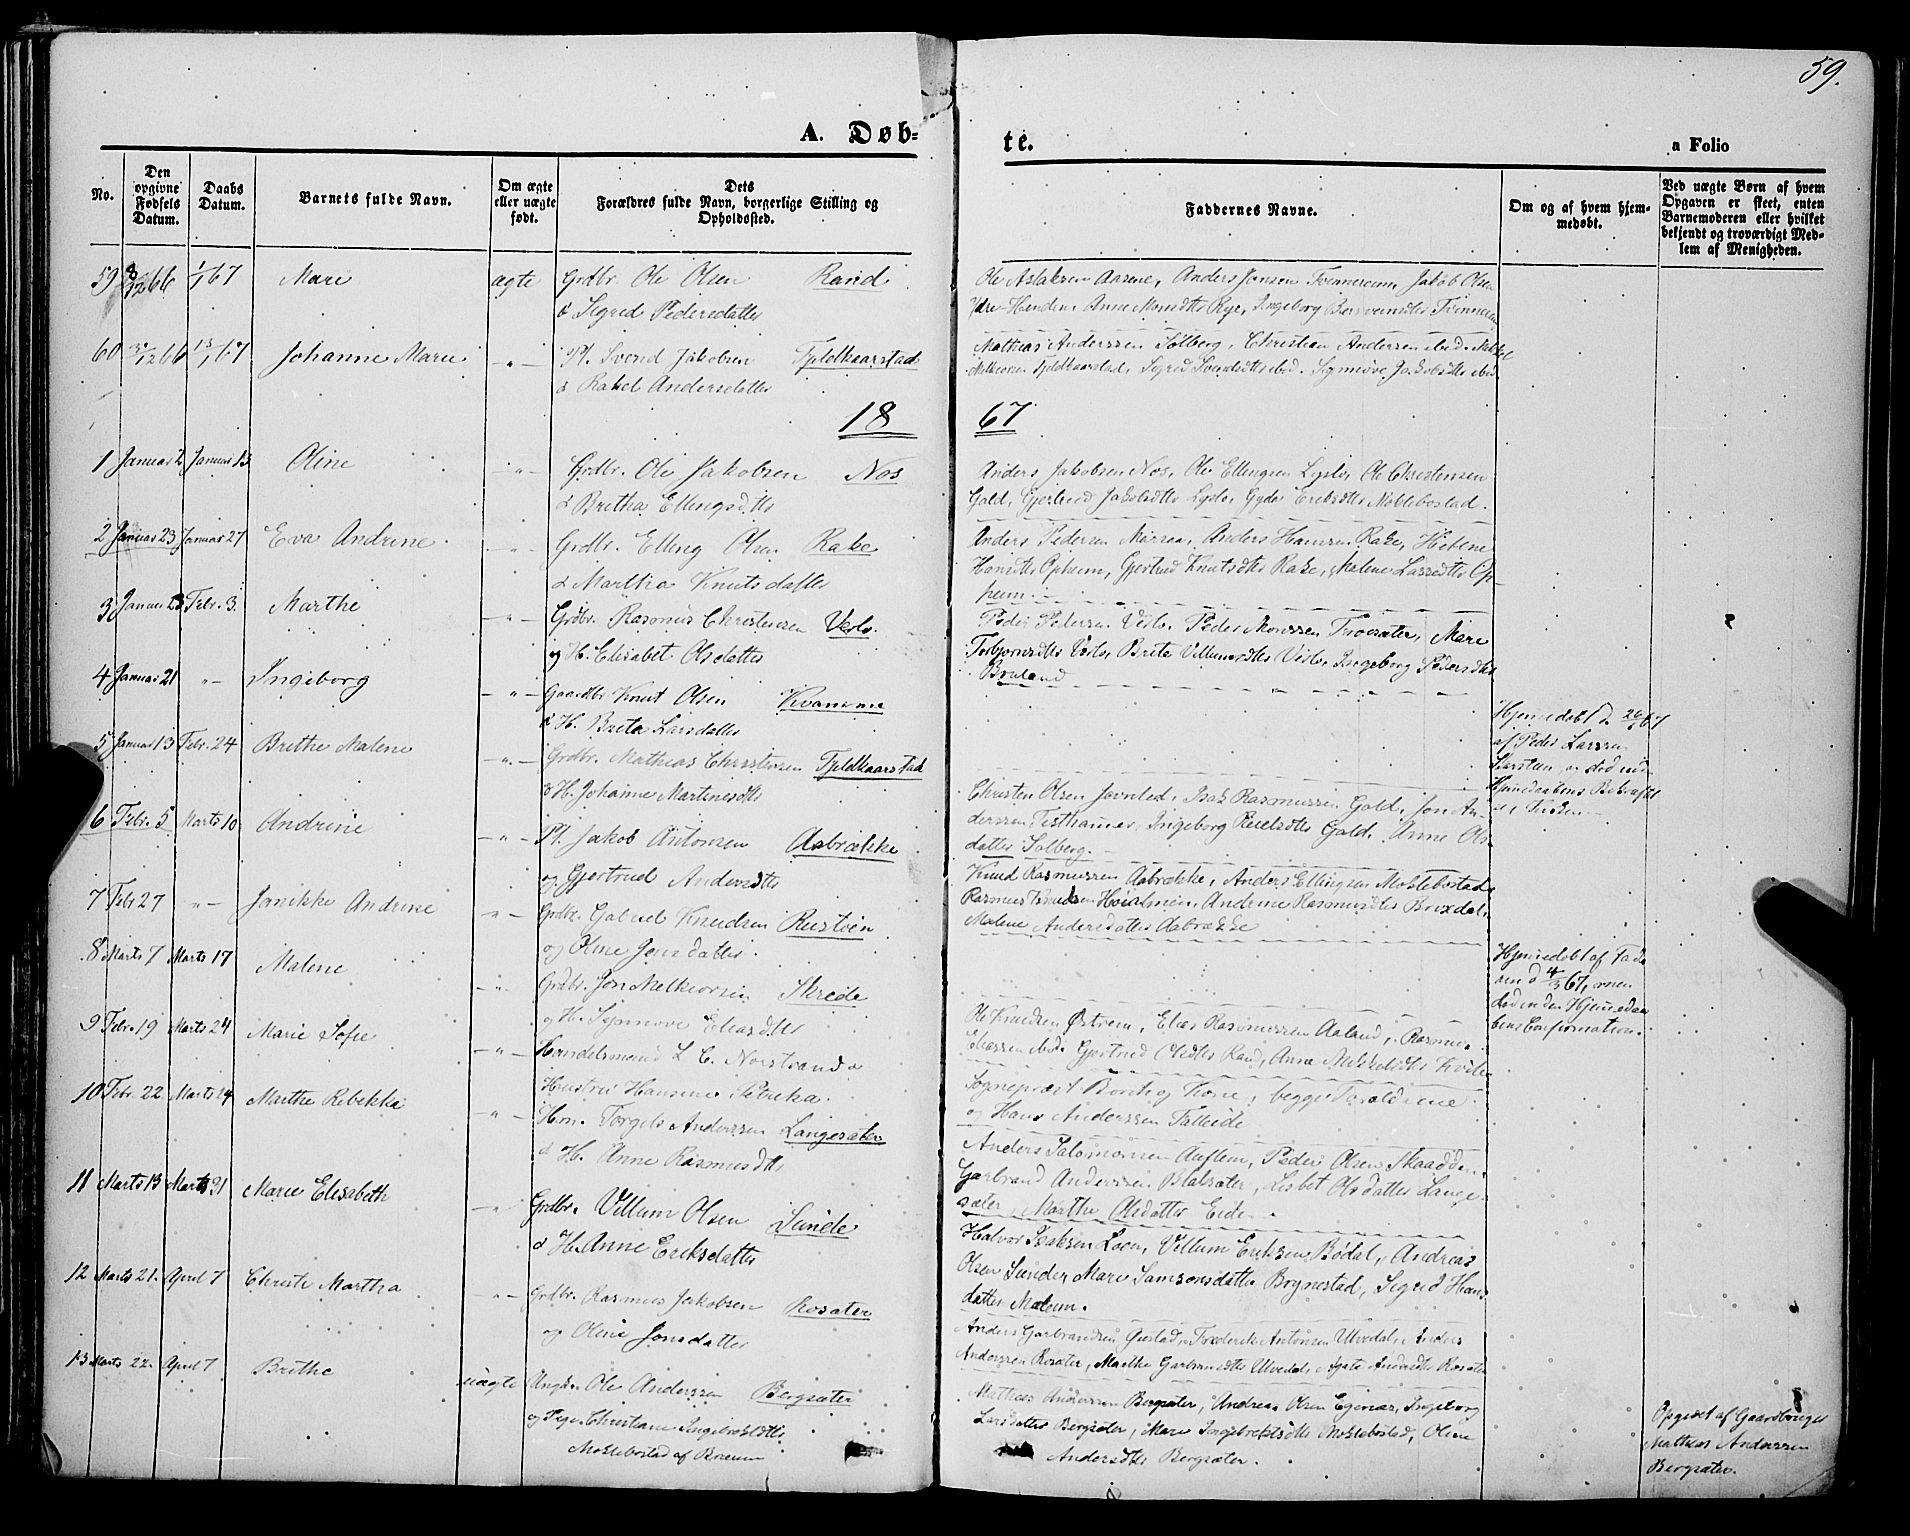 59.
A. Døb-
te.
a Folio
No.
Den opgivne Fødsels Datum.
Daabs Datum.
Barnets fulde Navn.
Om ægte eller uægte født.
Dets Forældres fulde Navn, borgerlige Stilling og Opholdssted.
Faddernes Navne.
Om og af hvem hjem-
medøbt.
Ved uægte Børn af hvem
Opgaven er skeet, enten
Barnemoderen eller hvilket
bekjendt og troværdigt Med-
lem af Menigheden.
59 8/12 66 1/1 67 Mari ægte Grdbr. Ole Olsen Rand
& Sigrid Pedersdatter
Ole Aslaksen Aarene, Anders Jonsen Tvinnereim, Jakob Olsen
Anne Monsdtr Rye, Ingeborg
60 13/1 67 Johanne Marie -"- Pl. Svend Jakobsen Fjeldkaarstad
& Rakel Andersdatter
Mathias Anderssen Solberg, Christian Anderssen ibid. Mikkel
Melkiorsen Fjeldkaarstad, Sigrid Svendsdtr ibid. Synnøve Jakobsdtr ibid.
18 67
1 Januar 2 Januar 13 Oline -"- Grdbr. Ole Jakobsen Nos
& Brithe Ellingsdtr
Anders Jakobsen Nos, Ole Ellingsen Lyslo, Ole Christensen
Gald, Gjertrud Jakobsdtr Lyslo, Gyda Eriksdtr Moklebostad.
2 Januar 23 Januar 27 Eva Andrine -"- Grdbr. Elling Olsen Rake
& Martha Knutsdatter
Anders Pedersen Mørren, Anders Hansen Rake, Helene
Hansdtr Opheim, Gjertrud Knutsdtr Rake, Malene Lassedtr Op-
heim.
3 Januar 23 Febr. 3 Marthe -"- Grdbr. Rasmus Christensen Verlo.
og H. Elisabet Olsdatter
Peder Pedersen Verlo, Peder Monssen Tvorsæter, Mari
Torbjørnsdtr Verlo, Brite Villumsdtr Verlo, Ingeborg Pedersdtr
Bruland
4 Januar 21 -"- Ingeborg -"- Gaardbr. Knut Olsen Kvamme
& H. Brita Larsdatter
Hjemedøbt d. 26/1 67
af Peder Larssen
5 Januar 13 Febr. 24 Brithe Malene -"- Grdbr. Mathias Christensen Fjeldkaarstad
& H. Johanne Martinesdtr
Christen Olsen Isak Rasmussen Gald, Jon An-
derssen Festhamer, Ingeborg Gald, Anne Ols-
datter Solberg.
6 Febr. 5 Marts 10 Andrine -"- Pl. Jakob Antonsen Aabrække
og Gjertrud Andersdtr
Knud Rasmussen Aabrække, Anders Ellingsen Moklebostad,
Rasmus Knudsen Høialmen, Andrine Rasmusdtr Brixdal,
Malene Andersdatter Aabrække
7 Febr 27 -"- Janikke Andrine -"- Grdbr. Gabriel Knudsen Rustøen
og Oline Jensdatter.
8 Marts 7 Marts 17 Malene -"- Grdbr. Jon Melkiorsen Skrede
og H. Synnøve Eliasdtr
Hjemedøbt af Fade-
ren d. 4/3 67, men
død inden Hjemedaa-
bens Confirmation.
9 Febr. 19 Marts 24 Marie Sofie -"- Handelsmand L. C. Norstrand &
Hustru Hansine Petrika.
Ole Knudsen Østrem, Elias Rasmussen Aaland, Rasmus
Eliassen ibid. Gjertrud Olsdtr Rand, Anne Mikkelsdtr
10 Febr. 22 Marts 24 Marthe Rebekka -"- Hm. Torgils Anderssen Langesæter
& H. Anne Rasmusdtr
Sognepræst og Kone, begge Forældrene
og Hans Anderssen Falleide.
11 Marts 13 Marts 31 Marie Elisabeth -"- Grdbr. Villum Olsen Sunde
& H. Anne Eriksdatter
Anders Salomonsen Auflem, Peder Olsen Skaadden,
Garbrand Anderssen Blaksæter, Lisbet Olsdatter Lange-
sæter, Marthe Olsdatter Eide.
Halvor Isaksen Loen, Villum Eriksen Bødal, Andreas
Olsen Sunde, Mari Samsonsdatter Brynestad, Sigrid Hans-
datter Melem.
12 Marts 21. April 7 Christi Martha -"- Grdbr. Rasmus Jakobsen Rosæter
og Oline Jonsdatter
Anders Garbrandsen Gustad, Frederik Antonsen Ulvedal, Anders
Anderssen Rosæter, Marthe Garbrandsdtr Ulvedal, Agate Andersdtr Rosæter
13 Marts 22. April 7 Brithe uægte Ungk. Ole Anderssen Bergsæter
og Pige Christiane Ingebrektsdtr
Moklebostad af Breum
Mathias Anderssen Bergsæter, Andreas Olsen Egenæs, Ingeborg
Larsdatter Bergsæter, Mari Ingebrektsdtr Moklebostad, Oline
Andersdtr Bergsæter.
Opgivet af Gaardbruger
Mathias Anderssen
Bergsæter.